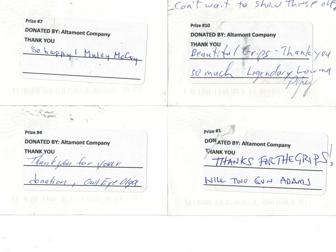 Can't wait to show these off
Prize #7
DONATED BY: Altamont Company
THANK YOU
So happy! Muley McCoy
Prize #10
DONATED BY: Altamont Company
THANK YOU
Beautiful Grips - Thank you
so much Legendary
Prize #4
DONATED BY: Altamont Company
THANK YOU
Thank you for your
donation, One Eye
Prize #1
DONATED BY: Altamont Company
THANK YOU
THANKS FOR THE GRIPS!
WILL TWO GUN ADAMS